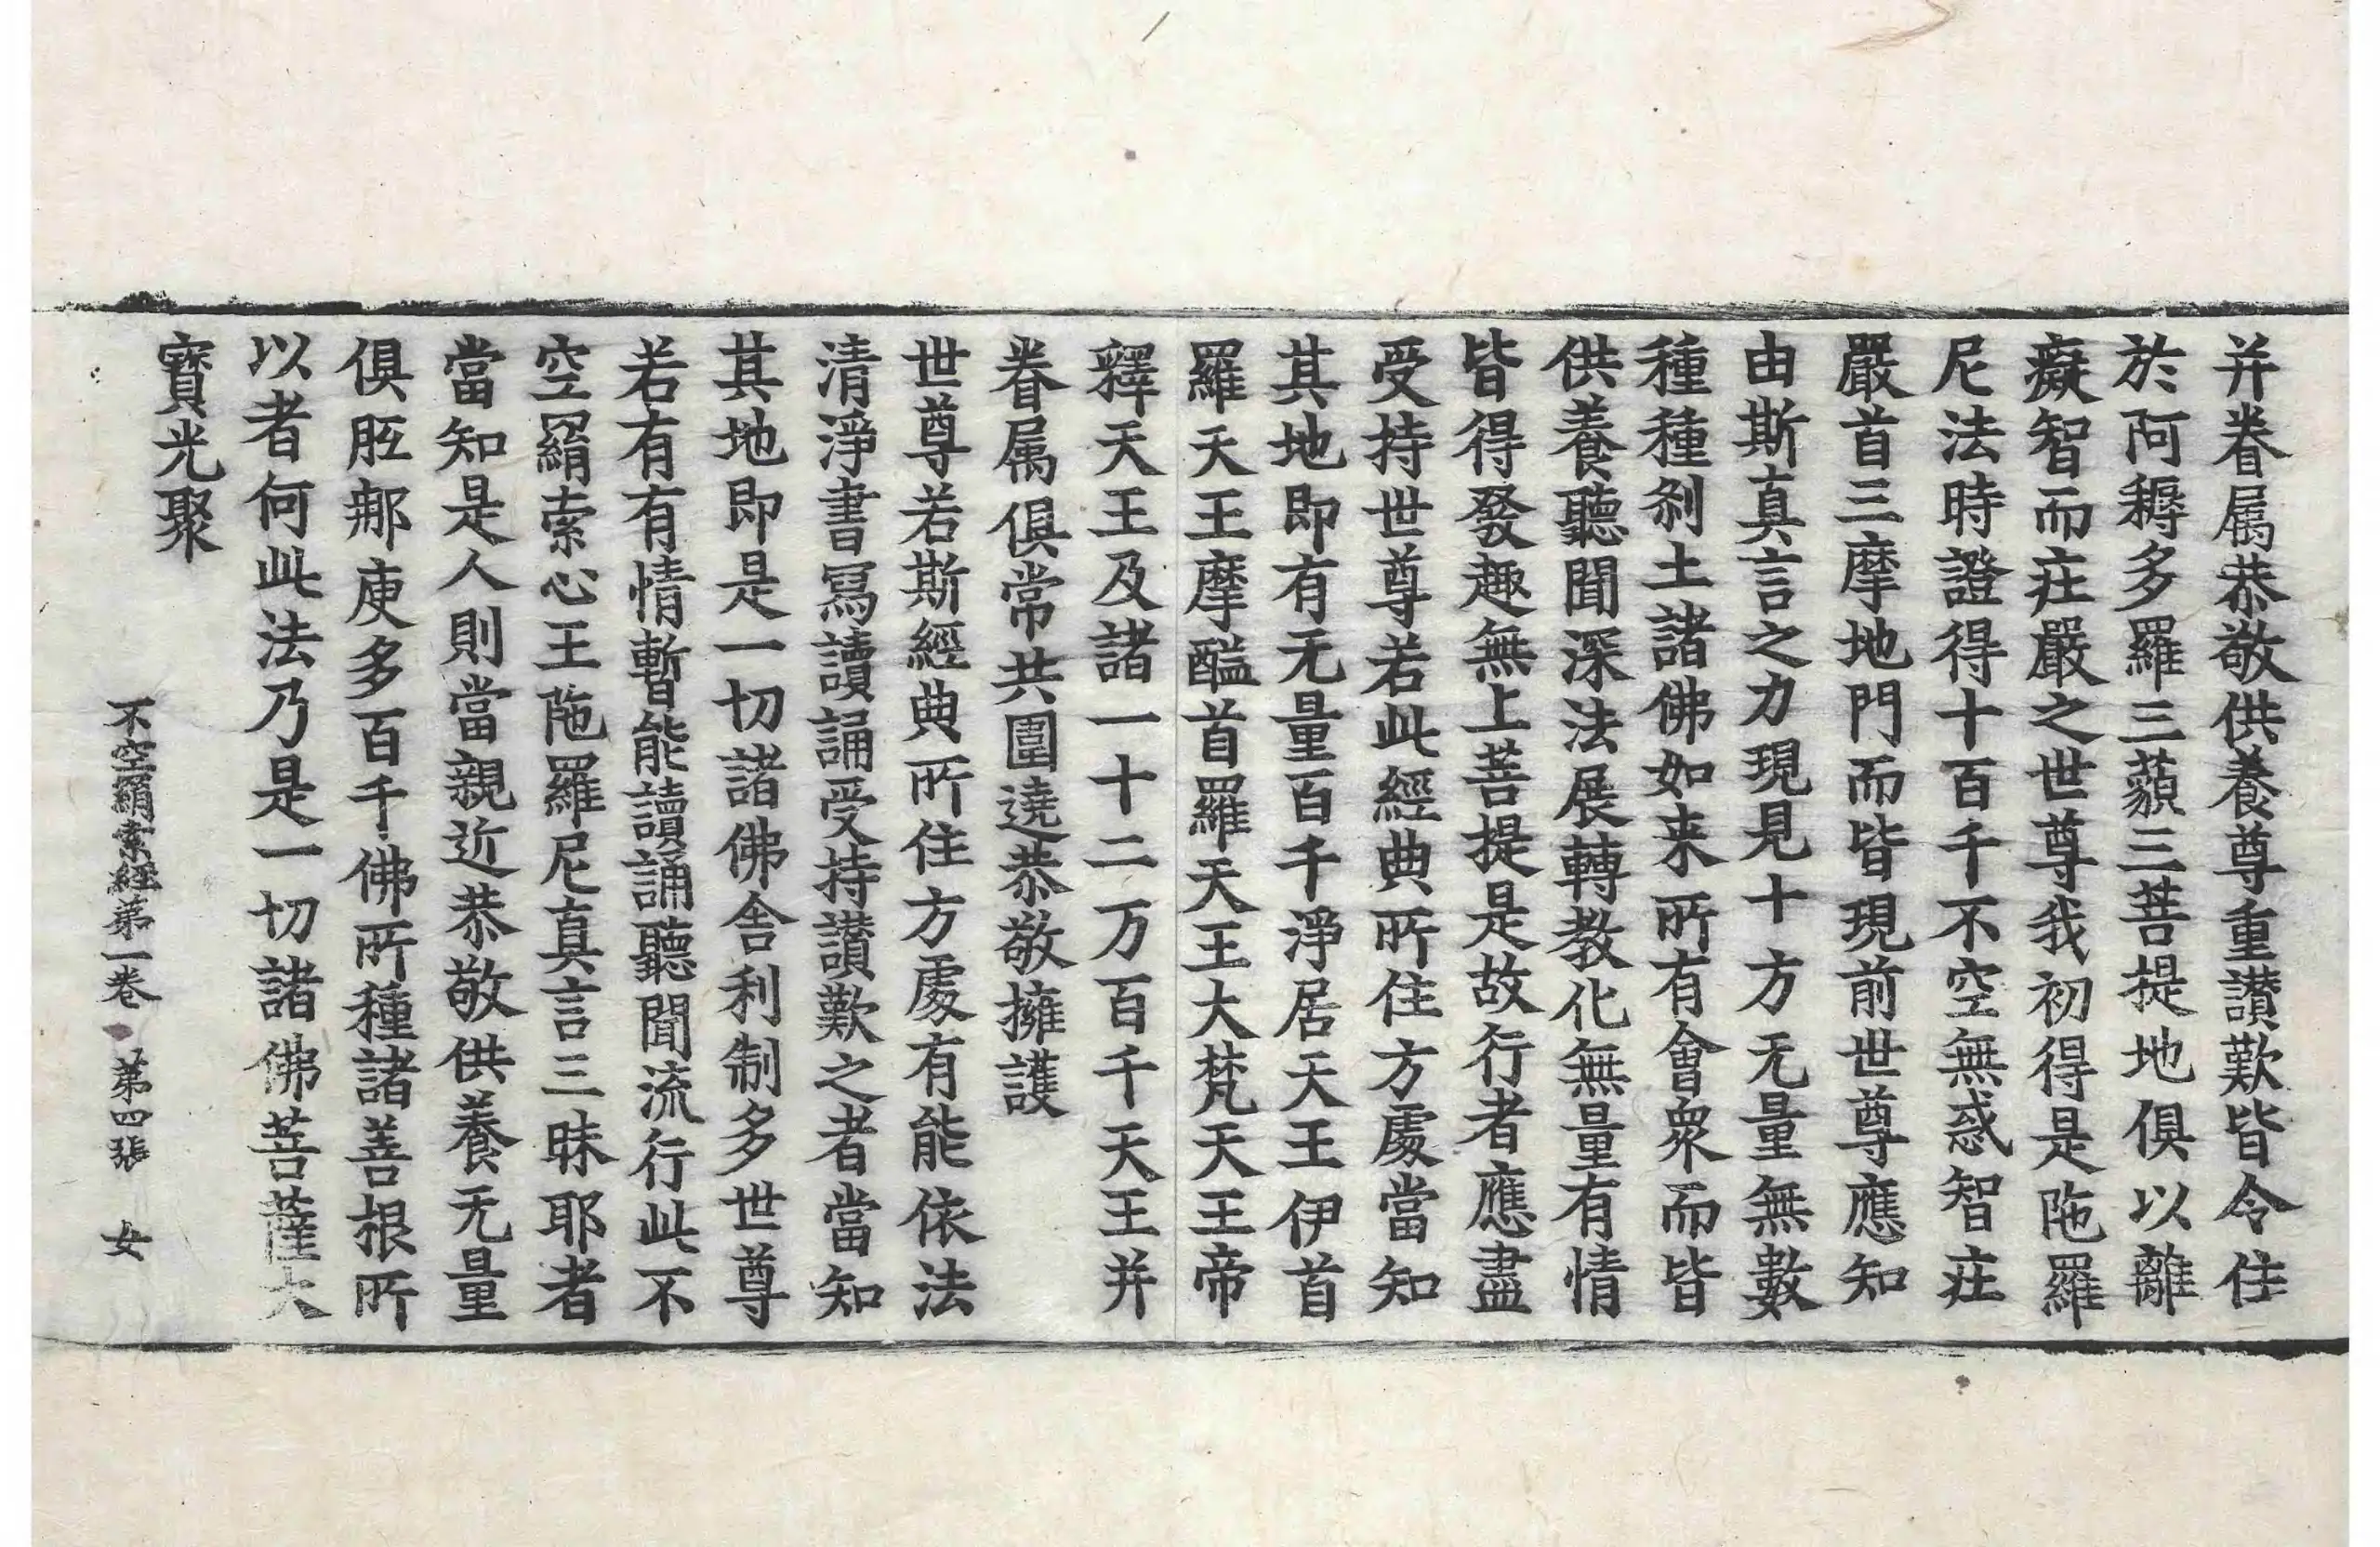 并眷属恭敬供養尊重讃歎皆令住
於阿耨多羅三藐三菩提地俱以離
癡智而庄嚴之世尊我初得是陁羅
尼法時證得十百千不空無惑智庄
嚴首三摩地門而皆現前世尊應知
由斯真言之力現見十方无量無數
種種刹土諸佛如来所有會衆而皆
供養聽聞深法展轉教化無量有情
皆得發趣無上菩提是故行者應盡
受持世尊若此經典所住方處當知
其地即有无量百千淨居天王伊首
羅天王摩醯首羅天王大梵天王帝
釋天王及諸一十二万百千天王并
眷属俱常共圍遶恭敬擁護
世尊若斯經典所住方處有能依法
清淨書寫讀誦受持讃歎之者當知
其地即是一切諸佛舍利制多世尊
若有有情暫能讀誦聽聞流行此不
空羂索心王陁羅尼真言三昧耶者
當知是人則當親近恭敬供養无量
俱胝那庾多百千佛所種諸善根所
以者何此法乃是一切諸佛菩薩大
寶光聚
不空羂索經第一卷 第四張 女